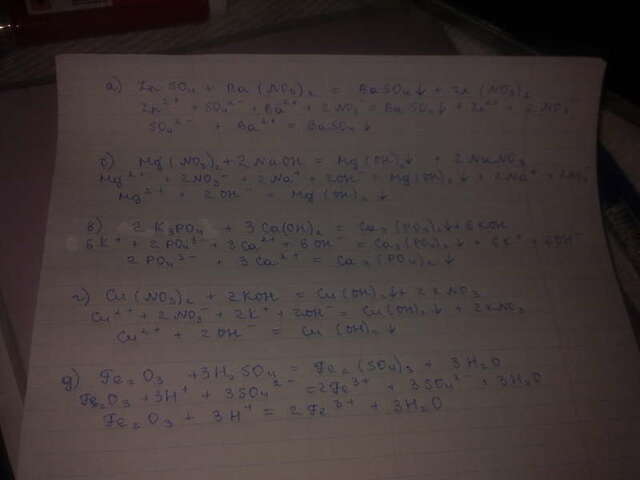 а) ZnSO4 + Ba(NO3)2 = BaSO4↓ + Zn(NO3)2
Zn²⁺ + SO4²⁻ + Ba²⁺ + 2NO3⁻ = BaSO4↓ + Zn²⁺ + 2NO3⁻
SO4²⁻ + Ba²⁺ = BaSO4↓
б) Mg(NO3)2 + 2NaOH = Mg(OH)2↓ + 2NaNO3
Mg²⁺ + 2NO3⁻ + 2Na⁺ + 2OH⁻ = Mg(OH)2↓ + 2Na⁺ + 2NO3⁻
Mg²⁺ + 2OH⁻ = Mg(OH)2↓
в) 2K3PO4 + 3Ca(OH)2 = Ca3(PO4)2↓ + 6KOH
6K⁺ + 2PO4³⁻ + 3Ca²⁺ + 6OH⁻ = Ca3(PO4)2↓ + 6K⁺ + 6OH⁻
2PO4³⁻ + 3Ca²⁺ = Ca3(PO4)2↓
г) Cu(NO3)2 + 2KOH = Cu(OH)2↓ + 2KNO3
Cu²⁺ + 2NO3⁻ + 2K⁺ + 2OH⁻ = Cu(OH)2↓ + 2KNO3
Cu²⁺ + 2OH⁻ = Cu(OH)2↓
д) Fe2O3 + 3H2SO4 = Fe2(SO4)3 + 3H2O
Fe2O3 + 3H⁺ + 3SO4²⁻ = 2Fe³⁺ + 3SO4²⁻ + 3H2O
Fe2O3 + 3H⁺ = 2Fe³⁺ + 3H2O